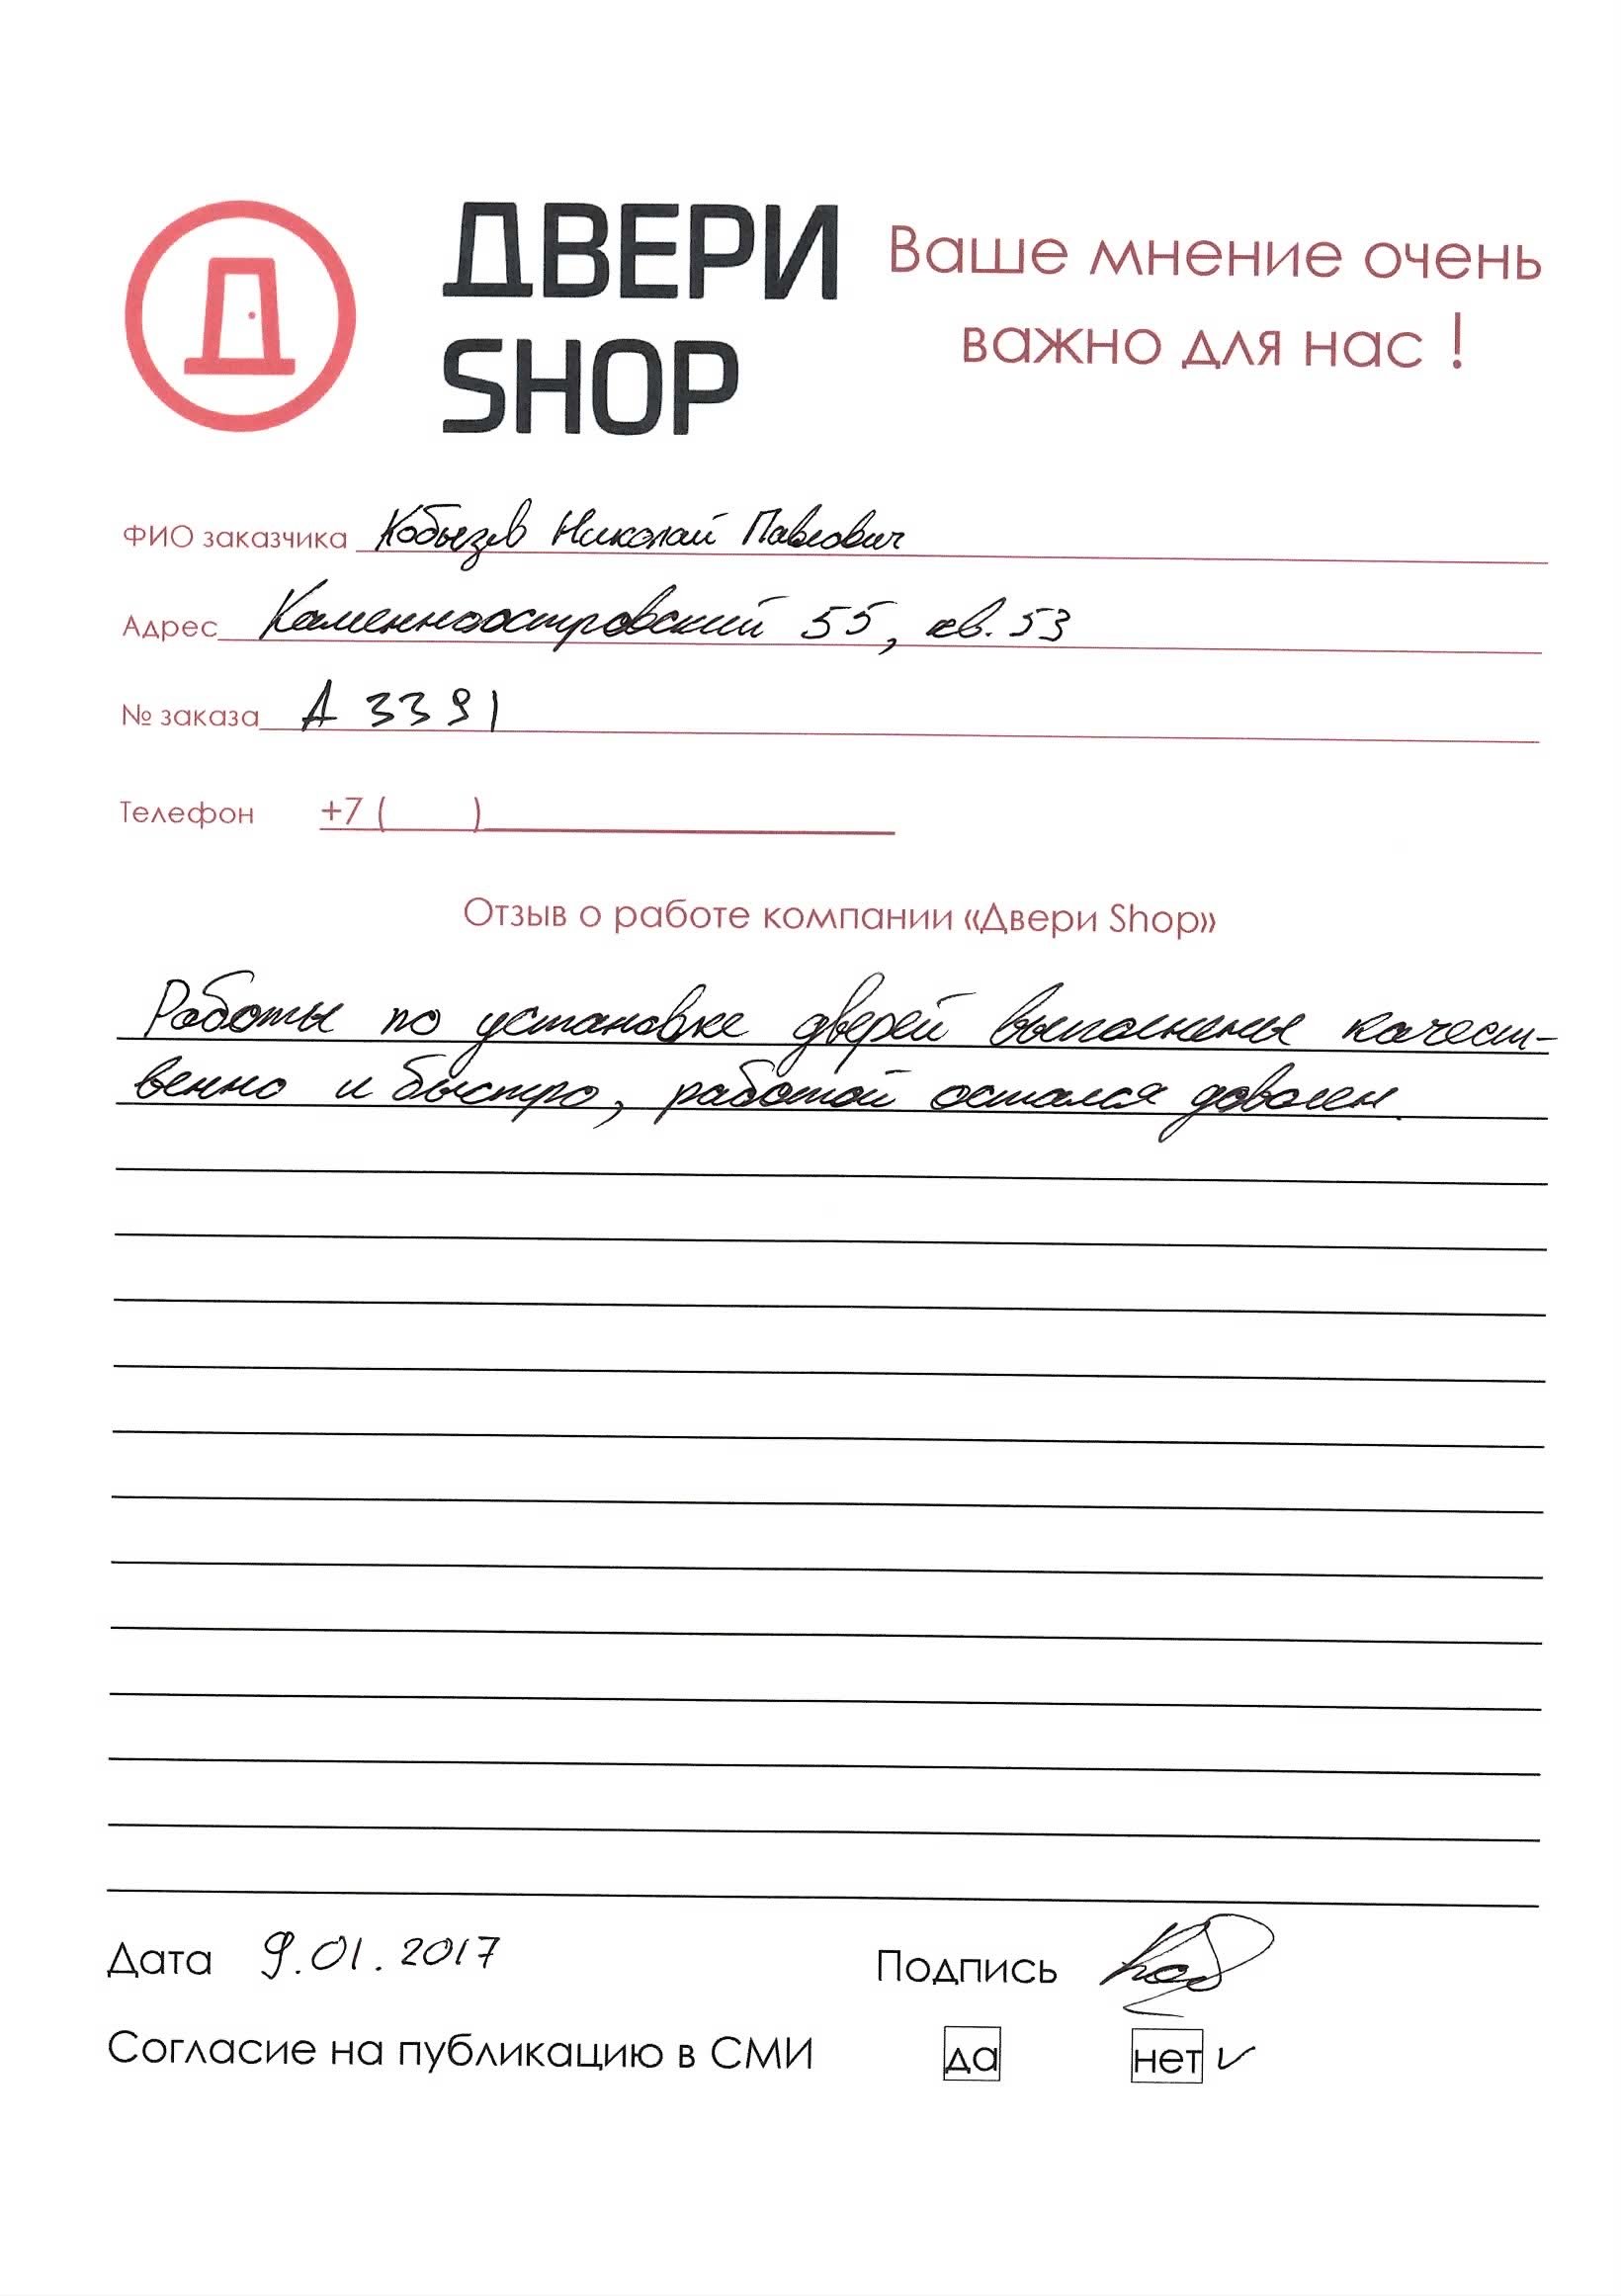 ДВЕРИ
SHOP
Ваше мнение очень
важно для нас !
ФИО заказчика Кобызев Николай Павлович
Адрес Каменноостровский 55, кв. 53
№ заказа А 3391
Телефон +7 ( )
Отзыв о работе компании «Двери Shop»
Работы по установке дверей выполнены качест-
венно и быстро, работой остался доволен.
Дата 9.01.2017 Подпись
Согласие на публикацию в СМИ да нет ✓